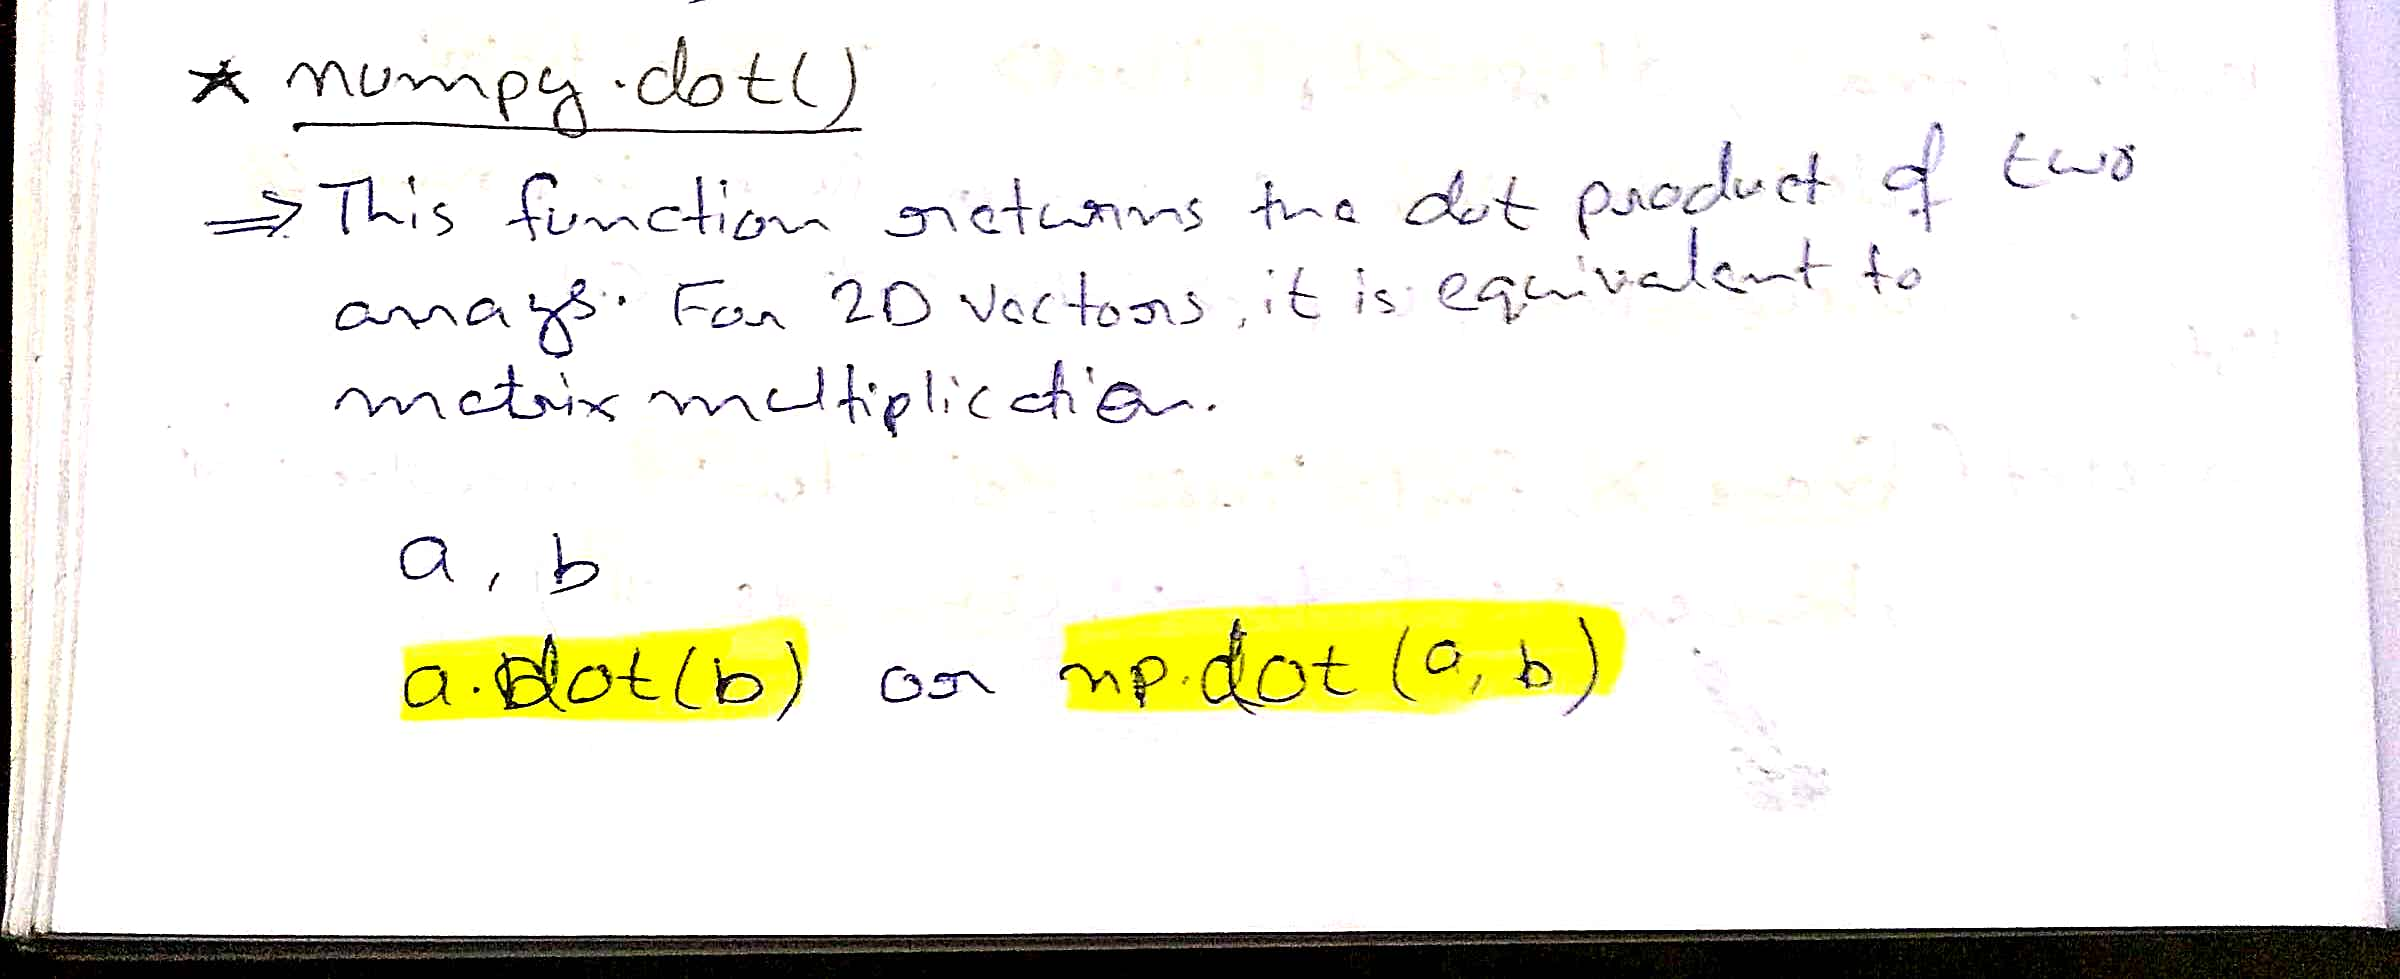 * numpy.dot()
⇒ This function returns the dot product of two
arrays. For 2D vectors, it is equivalent to
matrix multiplication.
a, b
a.dot(b) or np.dot(a, b)